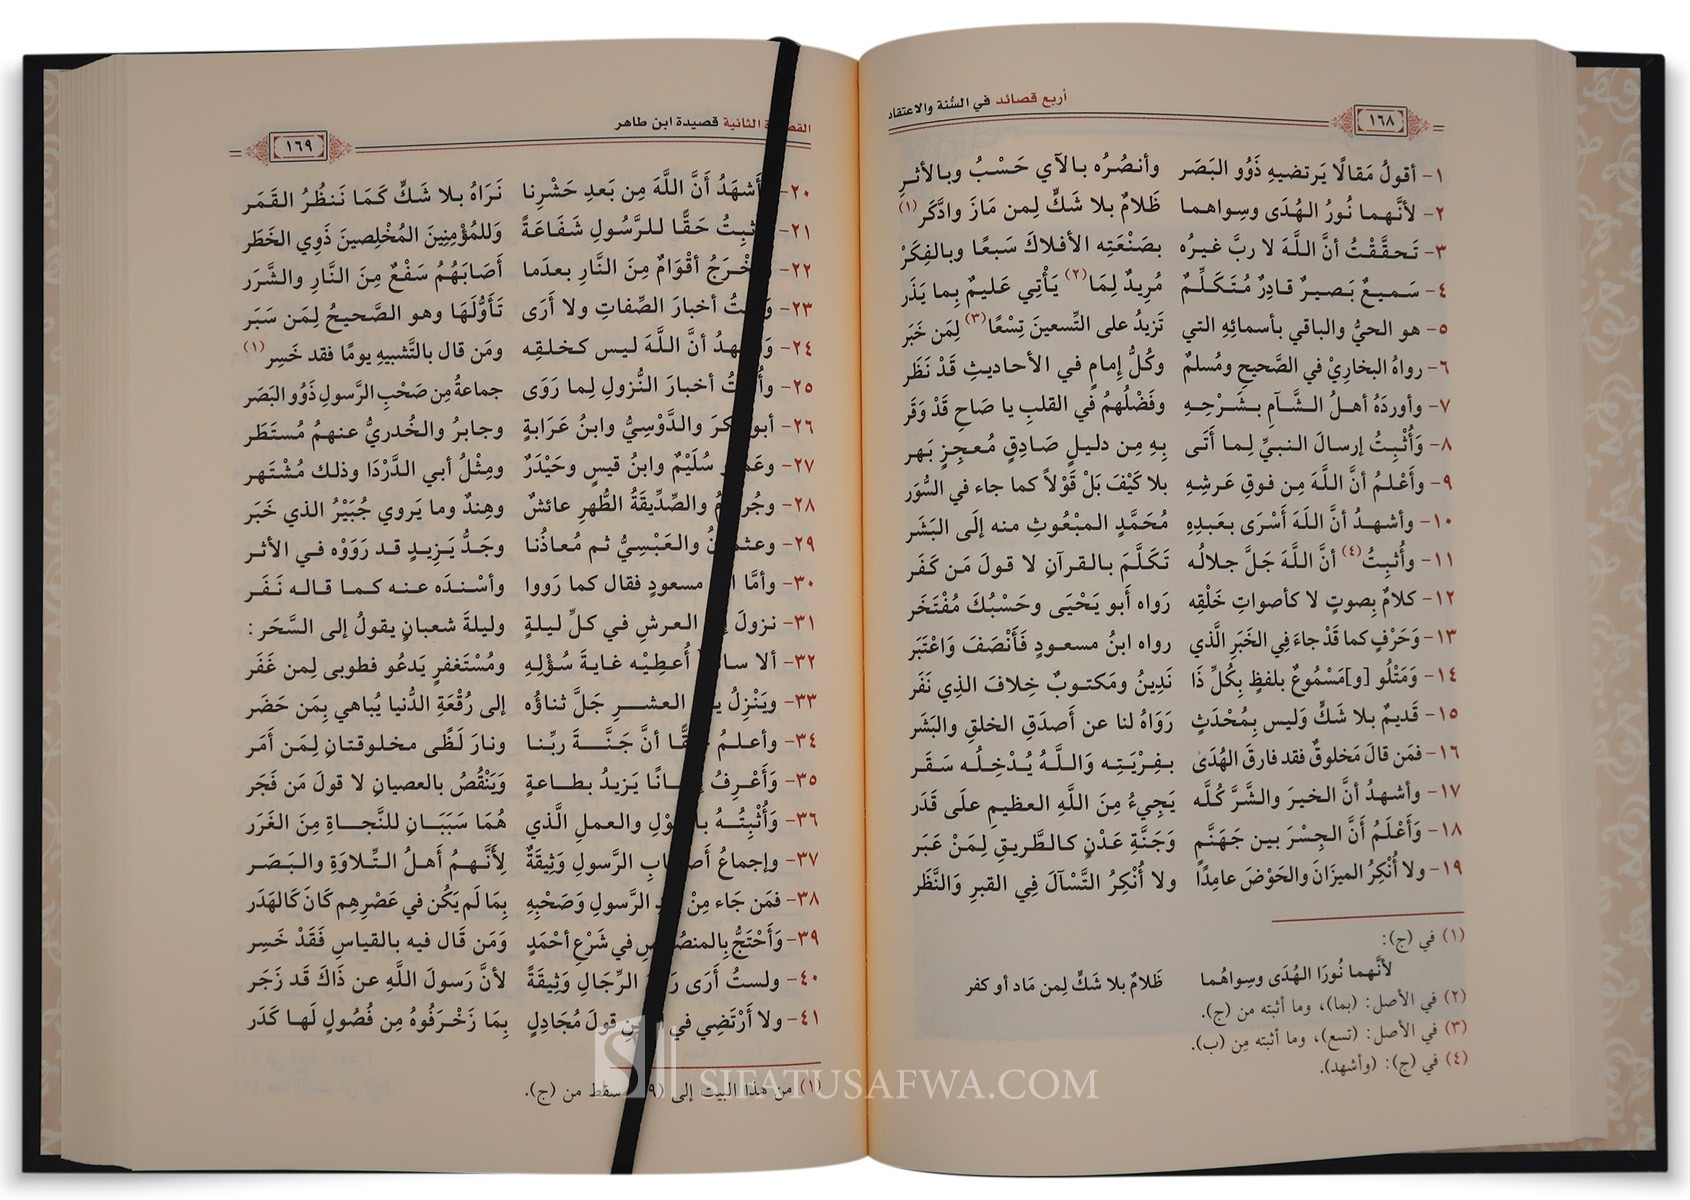 أربع قصائد في السُّنة والاعتقاد
١٦٨
١- أقولُ مَقالًا يَرتضيهِ ذَوُو البَصَر وأنصُرُه بالآي حَسْبُ وبالأثرِ
٢- لأنَّهما نُورُ الهُدَى وسِواهما ظَلامٌ بلا شَكٍّ لِمن مَازَ وادَّكَر (١)
٣- تَحقَّقْتُ أنَّ اللَّهَ لا ربَّ غيرُه بصَنْعَتِه الأفلاكَ سَبعًا وبالفِكَرْ
٤- سَميعٌ بَصيرٌ قادِرٌ مُتَكَلِّمٌ مُرِيدٌ لِمَا (٢) يَأْتِي عَليمٌ بِما يَذَر
٥- هو الحيُّ والباقي بأسمائِهِ التي تَزيدُ على التِّسعينَ تِسْعًا (٣) لِمَن خَبَر
٦- رواهُ البخارِيْ في الصَّحيحِ ومُسلمٌ وكُلُّ إمامٍ في الأحاديثِ قَدْ نَظَر
٧- وأوردَهُ أهلُ الشَّآمِ بشَرْحِهِ وفَضْلُهمُ في القلبِ يا صَاحِ قَدْ وَقَر
٨- وَأُثْبِتُ إرسالَ النبيِّ لِما أَتَى بِهِ مِن دليلٍ صَادِقٍ مُعجِزٍ بَهر
٩- وأَعْلمُ أنَّ اللَّهَ مِن فوقِ عَرشِهِ بلا كَيْفَ بَلْ قَوْلاً كما جاء في السُّوَر
١٠- وأشهدُ أنَّ اللَهَ أَسْرَى بعَبدِهِ مُحَمَّدٍ المبْعُوثِ منه إلَى البَشَر
١١- وأُثبِتُ (٤) أنَّ اللَّهَ جَلَّ جلالُه تَكَلَّمَ بالقرآنِ لا قولَ مَن كَفَر
١٢- كلامٌ بِصوتٍ لا كأصواتِ خَلْقِه رَواه أَبو يَحْيَى وحَسْبُكَ مُفْتَخَر
١٣- وَحَرْفٍ كما قَدْ جاءَ فِي الخَبَرِ الَّذي رواه ابنُ مسعودٍ فَأَنْصَفَ وَاعْتَبَر
١٤- وَمَتْلُو [و]مَسْمُوعٌ بلفظٍ بِكُلِّ ذَا نَدِينُ ومَكتوبٌ خِلافَ الذِي نَفَر
١٥- قَديمٌ بلا شَكٍّ وَليس بِمُحْدَثٍ رَوَاهُ لنا عن أَصدَقِ الخلقِ والبَشَر
١٦- فمَن قالَ مَخلوقٌ فقد فارقَ الهُدَى بفِرْيَتِه وَاللَّهُ يُدْخِلُه سَقَر
١٧- وأشهدُ أنَّ الخيرَ والشَّرَّ كُلَّه يَجِيءُ مِنَ اللَّهِ العظيمِ علَى قَدَر
١٨- وَأَعْلَمُ أَنَّ الجِسْرَ بين جَهَنَّم وَجَنَّةِ عَدْنٍ كالطَّريقِ لِمَنْ عَبَر
١٩- ولا أُنْكِرُ الميزَانَ والحَوْضَ عامِدًا ولا أُنْكِرُ التَّسْآلَ فِي القبرِ وَالنَّظَر
(١) في (ج):
لأنَّهما نُورَا الهُدَى وسِواهُما ظَلامٌ بلا شَكٍّ لِمن مَاد أو كفر
(٢) في الأصل: (بما)، وما أثبته من (ج).
(٣) في الأصل: (تسع)، وما أثبته مِن (ب).
(٤) في (ج): (وأشهد).
الثانية قصيدة ابن طاهر
١٦٩
٢٠- أشهَدُ أَنَّ اللَّهَ مِن بَعدِ حَشْرِنا نَرَاهُ بلا شَكٍّ كَمَا نَنظُرُ القَمَر
٢١- حَقًّا للرَّسُولِ شَفَاعَةً وَللمُؤْمِنِينَ المُخْلِصينَ ذَوِي الخَطَر
٢٢- أقْوَامٌ مِنَ النَّارِ بعدَما أَصَابَهُمُ سَفْعٌ مِنَ النَّارِ والشَّرَر
٢٣- أخبارَ الصِّفاتِ ولا أَرَى تَأَوُّلَهَا وهو الصَّحيحُ لِمَن سَبَر
٢٤- أنَّ اللَّهَ ليس كخلقِه ومَن قال بالتَّشبيهِ يومًا فقد خَسِر (١)
٢٥- أخبارَ النُّزولِ لِما رَوَى جماعةُ مِن صَحْبِ الرَّسولِ ذَوُو البَصَر
٢٦- والدَّوْسِيُّ وابنُ عَرَابةٍ وجابرُ والخُدريُّ عنهمُ مُستَطَر
٢٧- سُلَيْمٌ وابنُ قيسٍ وحَيْدَرٌ ومِثْلُ أبي الدَّرْدَا وذلك مُشْتَهر
٢٨- والصِّدِّيقَةُ الطُّهرِ عائشٌ وهِندٌ وما يَروي جُبَيْرُ الذي خَبَر
٢٩- والعَبْسِيُّ ثم مُعاذُنا وجَدُّ يَزِيدٍ قد رَوَوْه في الأثر
٣٠- وأمَّا مسعودٍ فقال كما رَووا وأسْندَه عنه كما قاله نَفَر
٣١- نزولَ العرشِ في كلِّ ليلةٍ وليلةَ شعبانٍ يقولُ إلى السَّحَر:
٣٢- ألا أُعطِيْه غايةَ سُؤْلِهِ ومُسْتَغفرٍ يَدعُو فطوبى لِمن غَفَر
٣٣- ويَنْزِلُ العشرِ جَلَّ ثناؤُه إلى رُقْعَةِ الدُّنيا يُباهي بِمَن حَضَر
٣٤- وأعلمُ أنَّ جَنَّةَ ربِّنا ونارَ لَظًى مخلوقتانِ لِمَن أَمَر
٣٥- وَأَعْرِفُ يَزيدُ بطاعةٍ وَيَنْقُصُ بالعصيانِ لا قولَ مَن فَجَر
٣٦- وَأُثْبِتُهُ والعملِ الَّذي هُمَا سَبَبَانِ للنَّجاةِ مِنَ الغَرَر
٣٧- وإجماعُ الرَّسولِ وَثِيقَةٌ لِأَنَّهمُ أَهلُ التِّلاوَةِ والبَصَر
٣٨- فمَن جَاء مِنْ الرَّسولِ وَصَحْبِهِ بِمَا لَم يَكُن في عَصْرِهِم كَانَ كَالهَدَر
٣٩- وَأَحْتَجُّ في شَرْعِ أحْمَدٍ وَمَن قَال فيه بالقياسِ فَقَدْ خَسِر
٤٠- ولستُ أَرَى الرِّجَالِ وَثِيقَةً لأنَّ رَسولَ اللَّهِ عن ذَاكَ قَد زَجَر
٤١- ولا أَرْتَضِي في قولَ مُجَادِلٍ بِمَا زَخْرَفُوهُ مِن فُصُولٍ لَها كَدَر
(١) من هذا البيت إلى سقط من (ج).
SIFATUSAFWA.COM